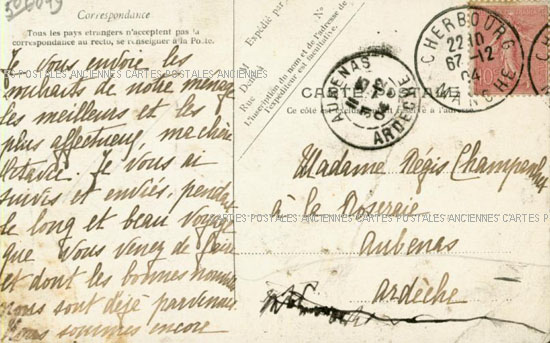 Correspondance
Tous les pays étrangers n'acceptent pas la
correspondance au recto, se renseigner à la Poste.
Je vous envoie les
souhaits de notre ménage
les meilleurs et les
plus affectueux, ma chère
Octavie. Je vous ai
suivis et enviés, pendant
le long et beau voyage
que vous venez de faire
et dont les bonnes nouvelles
nous sont déjà parvenues.
Nous sommes encore
Expédié par
N°
M
Demeurant
Rue
L'inscription du nom et de l'adresse de
l'expéditeur est facultative.
CARTE POSTALE
Ce côté est exclusivement réservé à l'adresse.
AUBENAS
ARDÈCHE
CHERBOURG
22 10
67-12
04
MANCHE
Madame Régis Champanhet
à la Roseraie
Aubenas
Ardèche
CARTES POSTALES ANCIENNES CARTES POSTALES ANCIENNES CARTES POSTALES ANCIENNES CARTES POSTALES